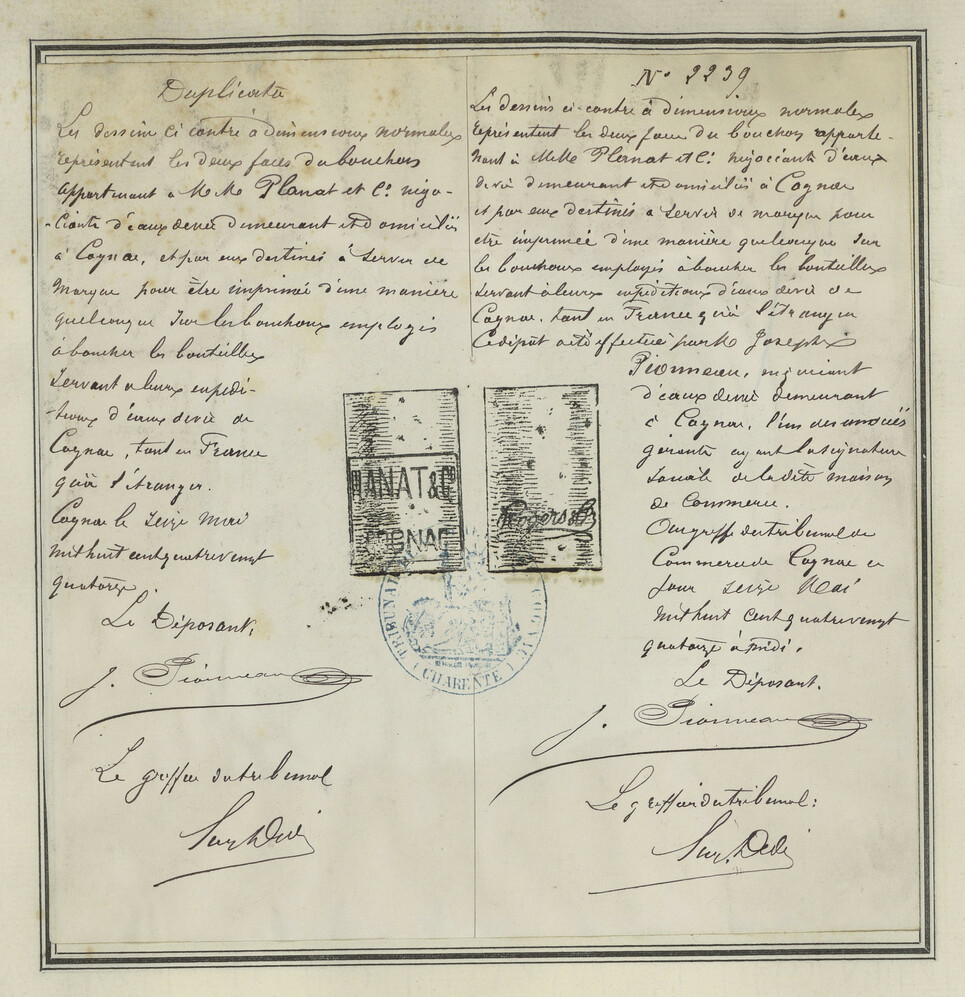 Duplicata
Les dessins ci contre à dimensions normales
représentent les deux faces du bouchon
appartenant à M M Planat et Cie négo-
-ciants d'eaux devie demeurant et domiciliés
à Cognac, et par eux destinés à servir de
Marque pour être imprimée d'une manière
quelconque sur les bouchons employés
à boucher les bouteilles
servant à leurs expédi-
tions d'eaux devie de
Cognac, tant en France
qu'à l'étranger.
Cognac le seize Mai
mil huit cent quatre vingt
quatorze.
Le Déposant,
J. Pionneau
Le greffier du tribunal
No 2239
Les dessins ci-contre à dimensions normales
représentent les deux faces du bouchon apparte-
nant à M M Planat et Cie négociants d'eaux
devie demeurant et domiciliés à Cognac
et par eux destinés à servir de marque pour
être imprimée d'une manière quelconque sur
les bouchons employés à boucher les bouteilles
servant à leurs expéditions d'eaux devie de
Cognac, tant en France qu'à l'étranger
Ce dépôt a été effectué par M Joseph
Pionneau, négociant
d'eaux devie demeurant
à Cognac, l'un des associés
gérants ayant la signature
sociale de la dite maison
de Commerce.
Au greffe du tribunal de
Commerce de Cognac ce
jour seize Mai
mil huit cent quatre vingt
quatorze à midi.
Le Déposant.
J. Pionneau
Le greffier du tribunal:
ANAT & Co
COGNAC
Rogers & Co
TRIBUNAL COGNAC
(CHARENTE)